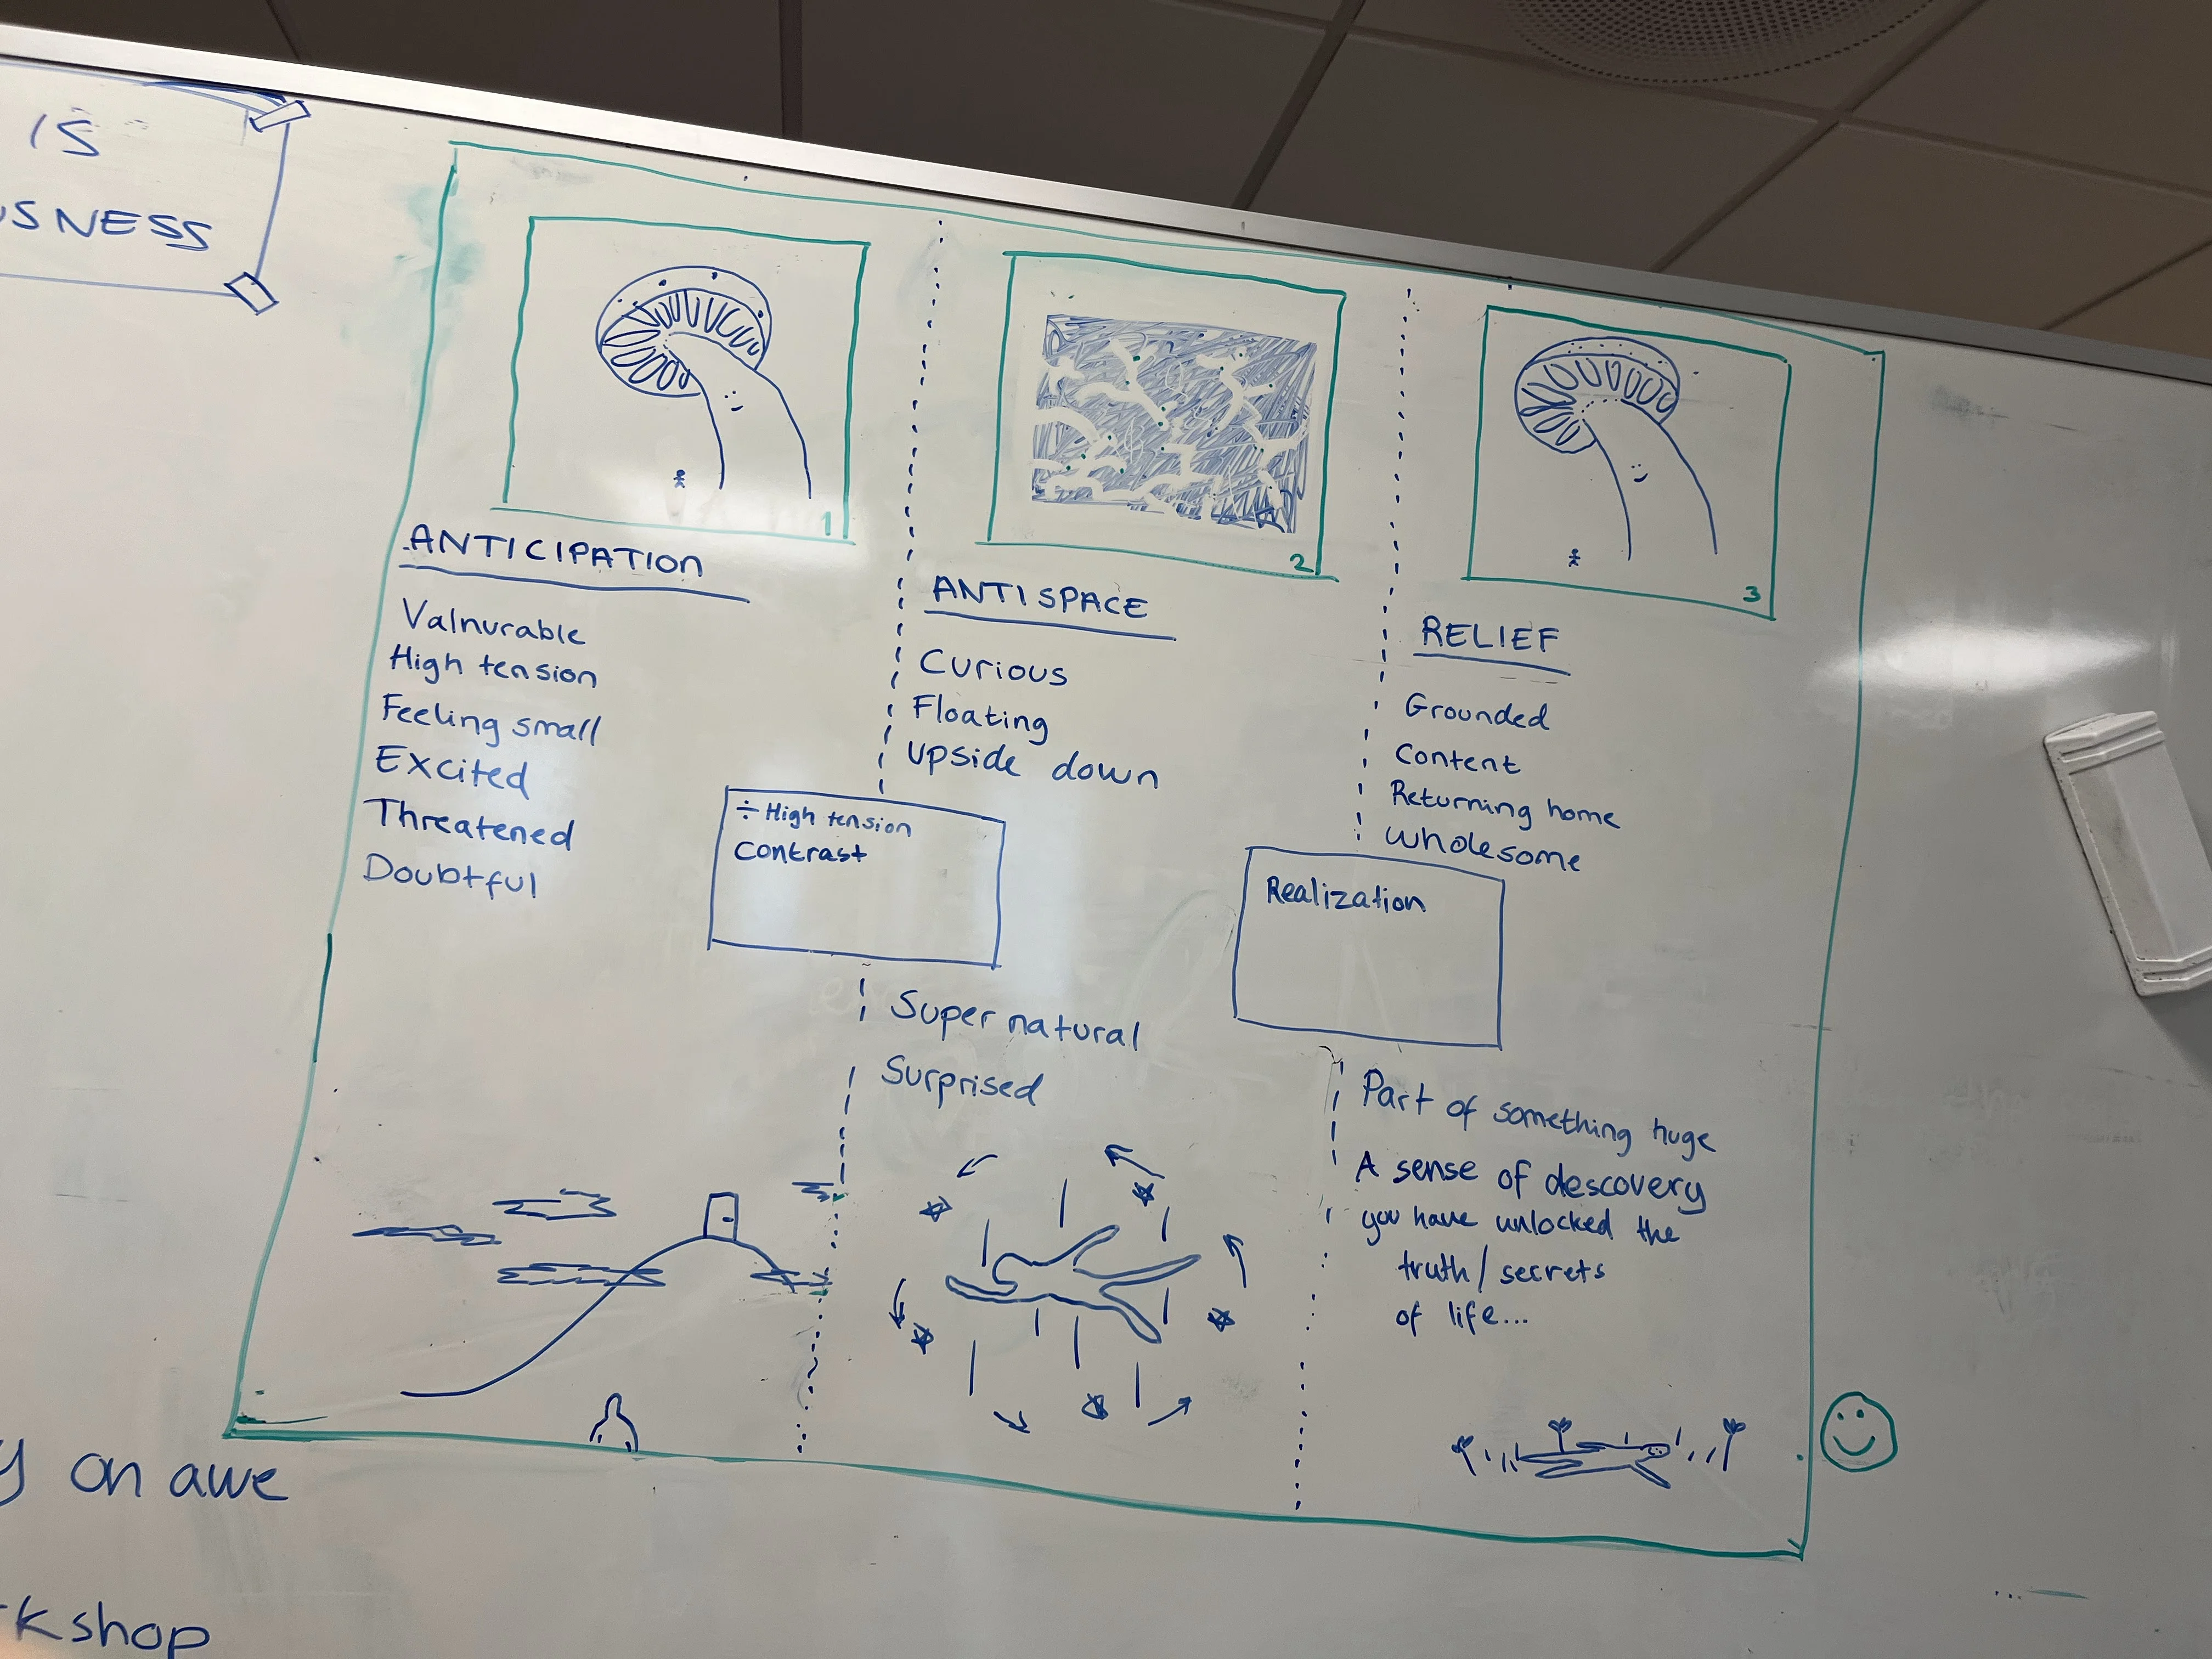 IS
USNESS
1
ANTICIPATION
Valnurable
High tension
Feeling small
Excited
Threatened
Doubtful
÷ High tension
Contrast
2
ANTISPACE
Curious
Floating
Upside down
Super natural
Surprised
3
RELIEF
Grounded
Content
Returning home
Wholesome
Realization
Part of something huge
A sense of descovery
you have unlocked the
truth/secrets
of life...
y on awe
kshop